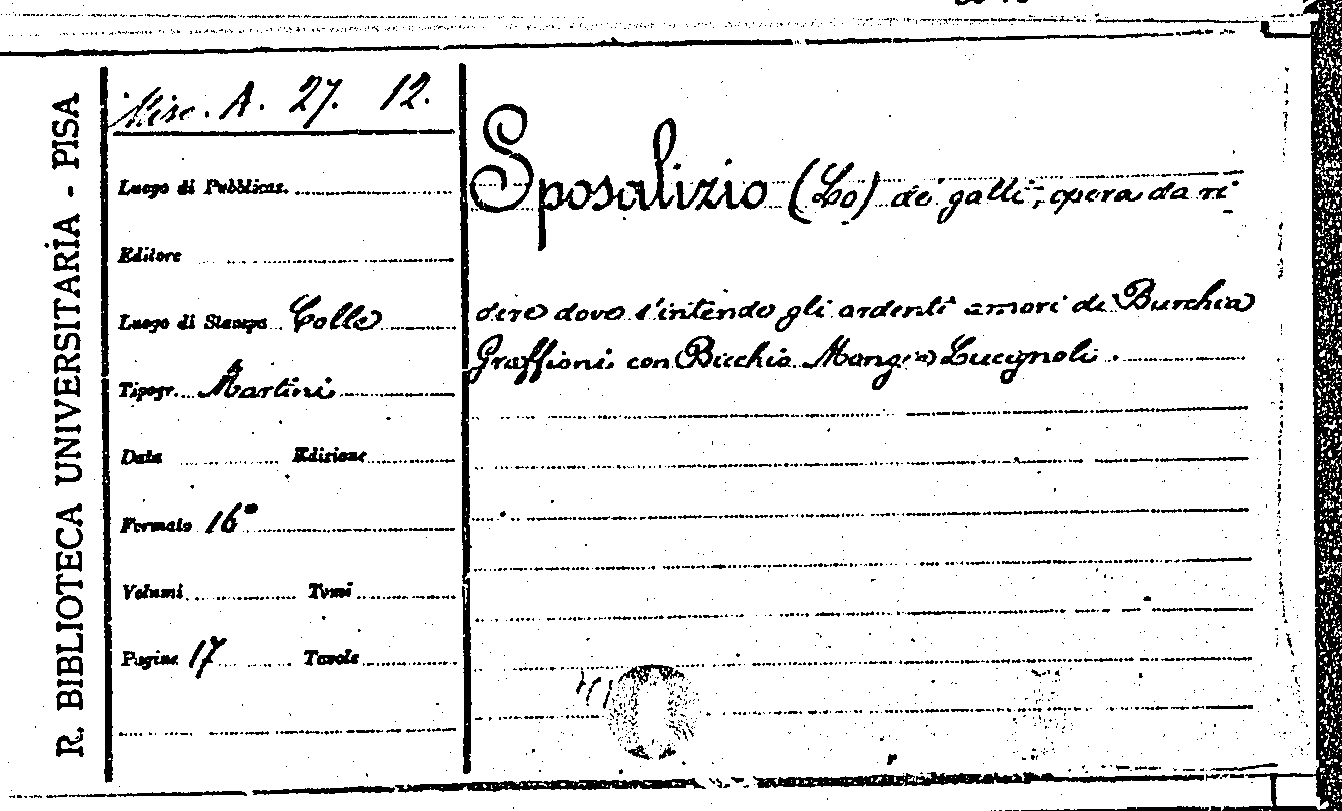 R. BIBLIOTECA UNIVERSITARIA - PISA
Misc. A. 27. 12.
Luogo di Pubblicaz.
Editore
Luogo di Stampa Colle
Tipogr. Martini
Data Edizione
Formato 16°
Volumi Tomi
Pagine 17 Tavole
Sposalizio (Lo) dei galli, opera da ri
dere dove s'intende gli ardenti amori di Burchia
Graffioni con Bicchio Lucignoli.